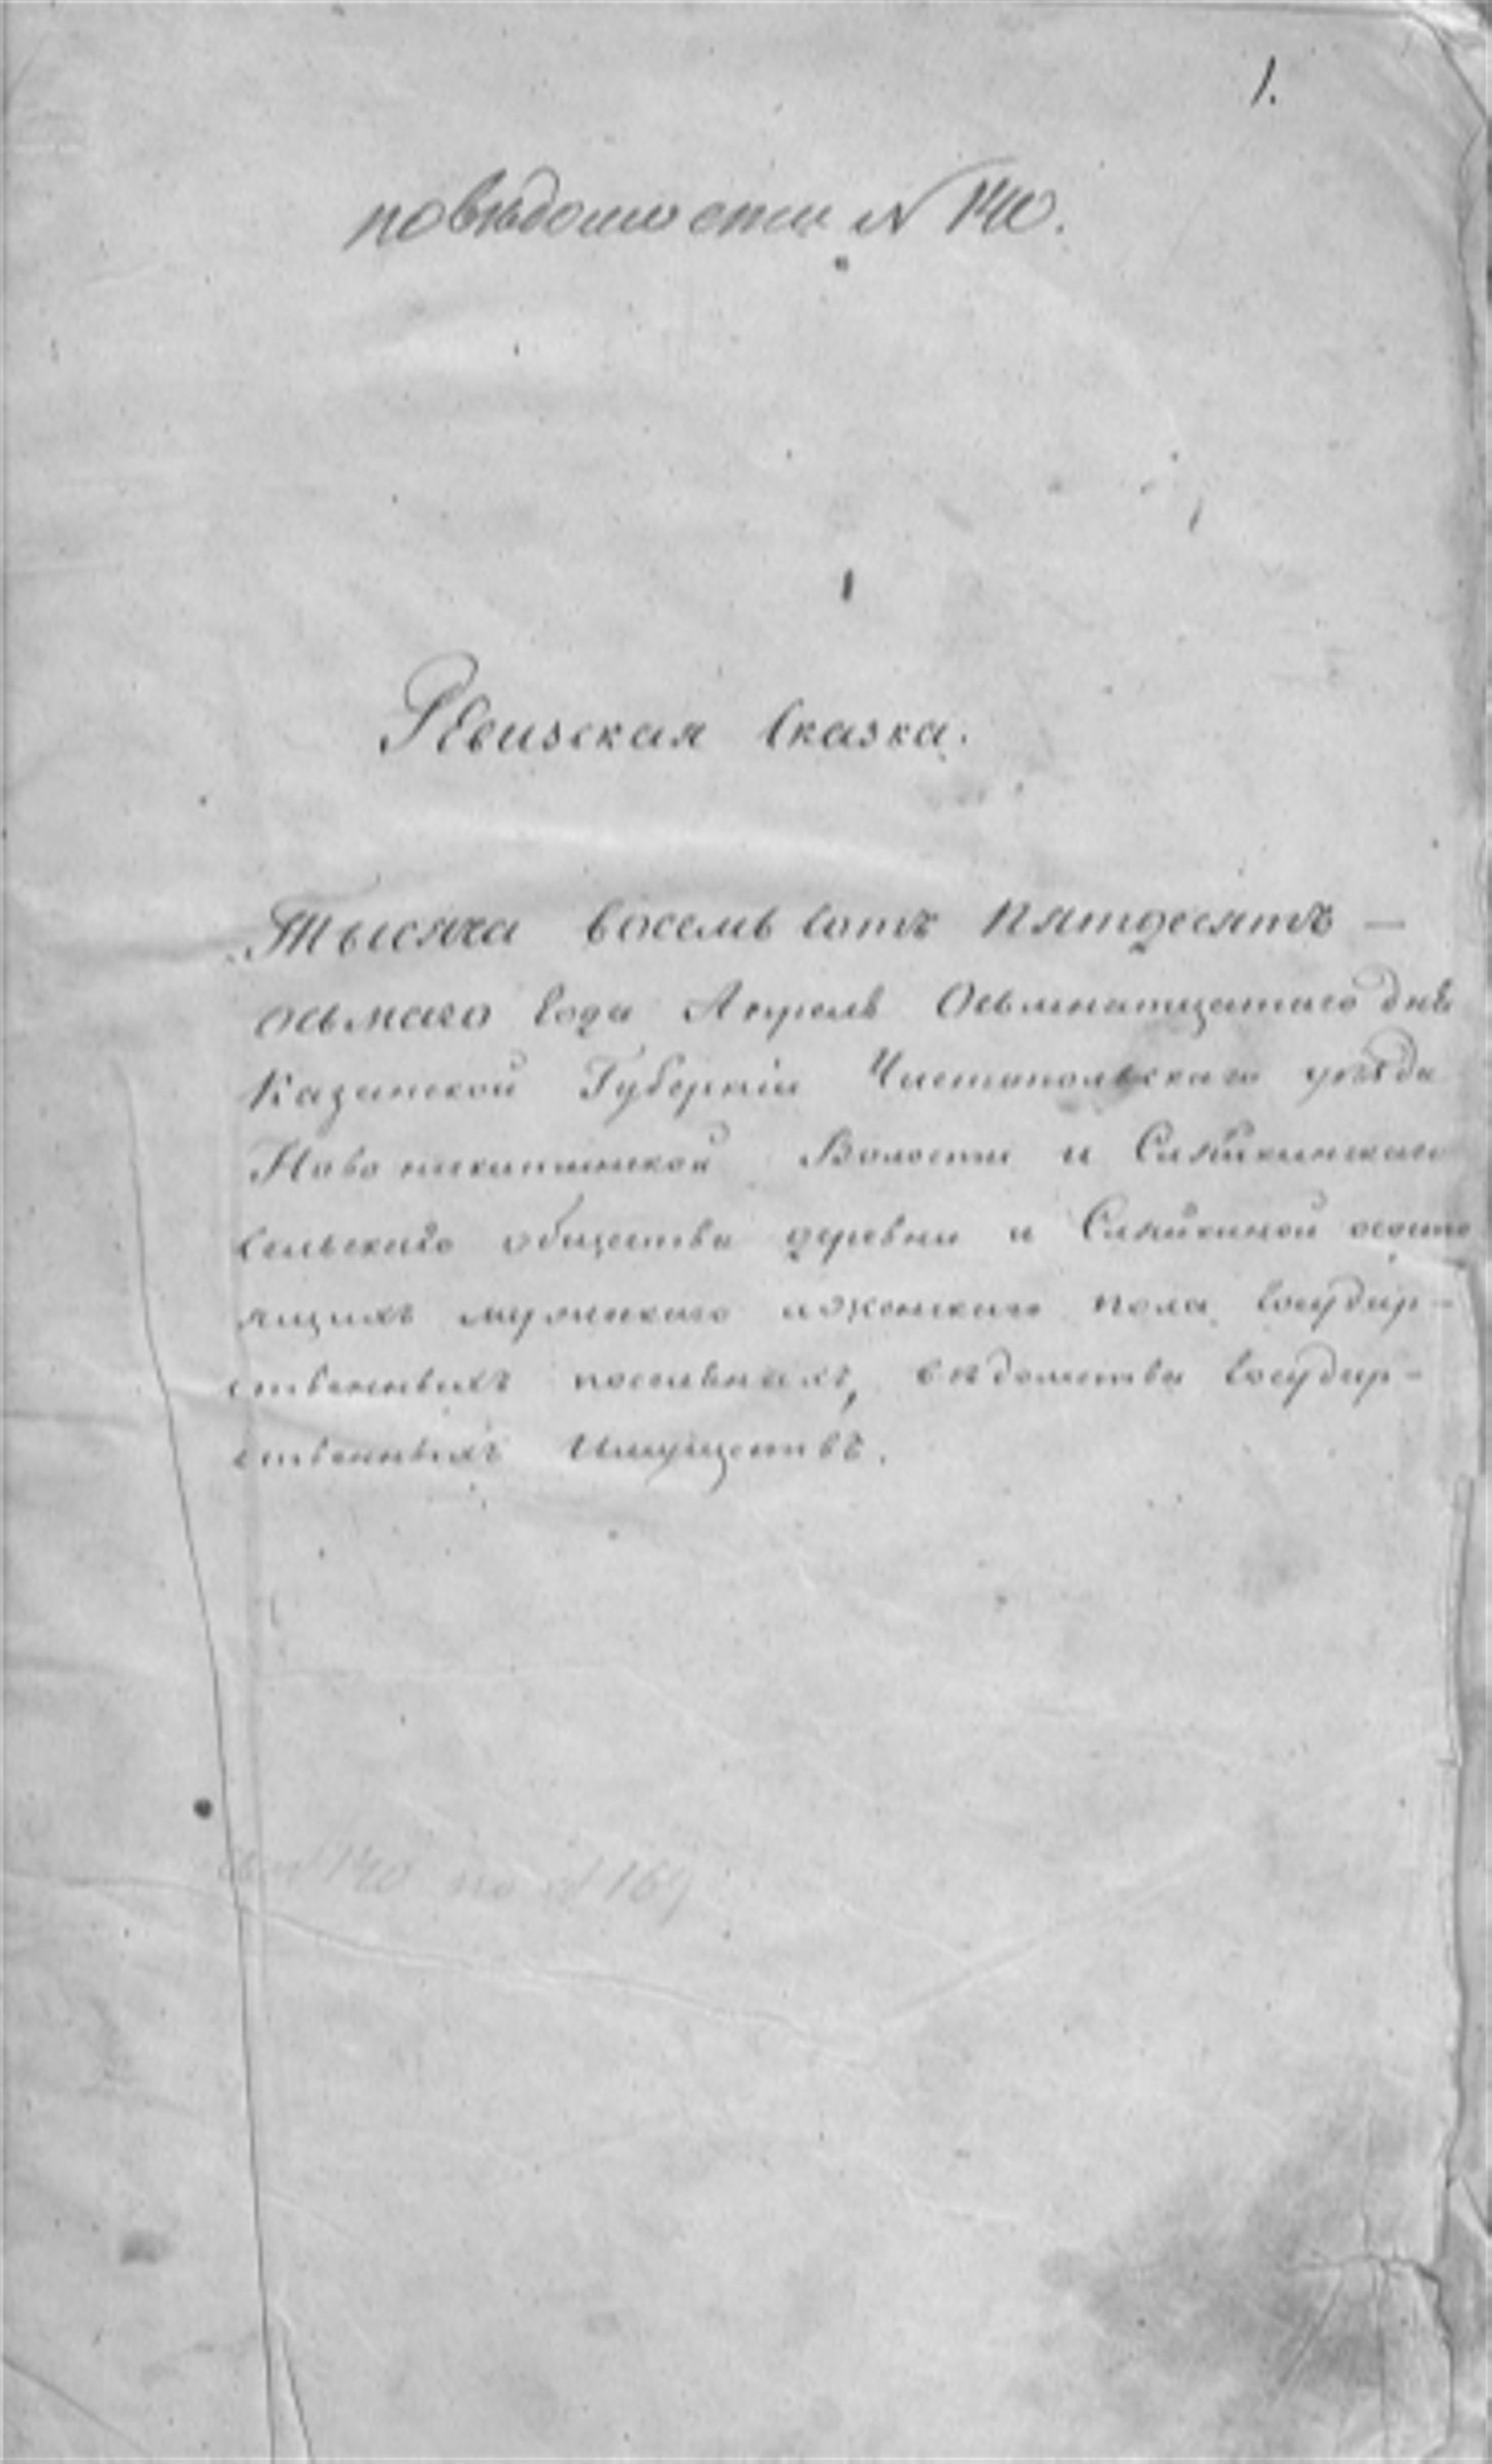 1.
по вѣдомости N 140.
Ревизская Сказка.
Тысяча восемь сотъ пятдесятъ —
осьмаго года Апреля Осьмнатцатаго дня
Казанской Губерніи Чистопольскаго уѣзда
Ново Волости и
сельскаго общества деревни о состо
ящихъ мужескаго и женскаго пола государ-
ственныхъ поселянахъ, вѣдомства государ-
ственныхъ Имуществъ.
140 по N 169